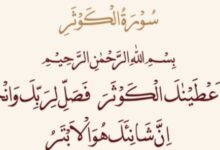 سُورَةُ الْكَوْثَرِ
بِسْمِ اللَّهِ الرَّحْمَٰنِ الرَّحِيمِ
الْكَوْثَرَ فَصَلِّ لِرَبِّكَ
إِنَّ شَانِئَكَ هُوَ الْأَبْتَرُ